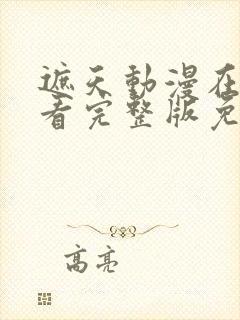 遮天動漫在
看完整版免
高亮